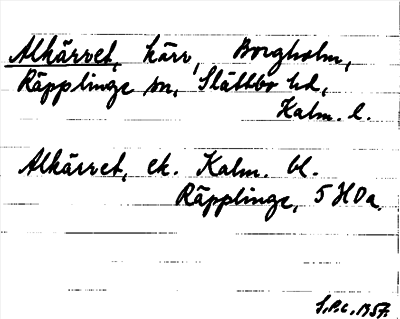 Alkärret, kärr, Borgholm,
Räpplinge sn, Slättbo hd,
Kalm. l.
Alkärret, ek. Kalm. bl.
Räpplinge, 5 H 0 a.
S.P.C. 1957.